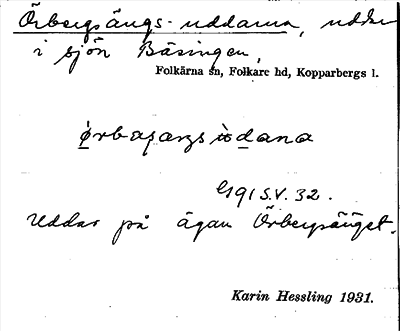 Örbergsängs-uddarna, uddar
i sjön Bäsingen,
Folkärna sn, Folkare hd, Kopparbergs l.
ørbæjærgsùdana
G191 S.V. 32.
Uddar på ägan Örbergsänget.
Karin Hessling 1931.